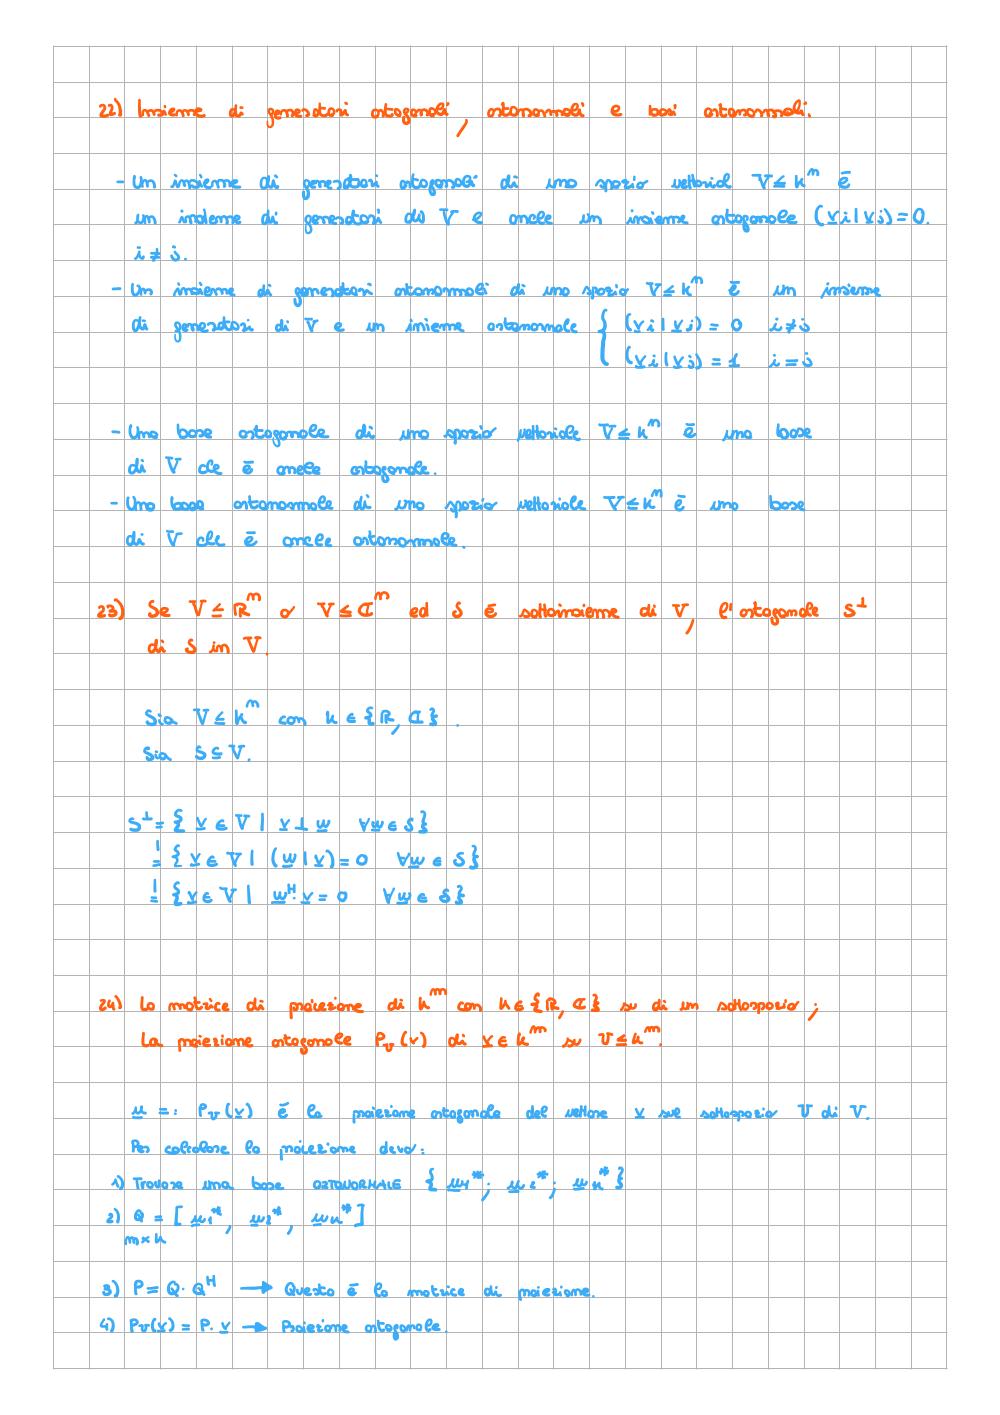 22) Insieme di generatori ortogonali, ortonormali e basi ortonormali.
- Un insieme di generatori ortogonali di uno spazio vettorial V ≤ K^n ē
un insieme di generatori di V e anche un insieme ortogonale (v_i | v_j) = 0.
i ≠ j.
- Un insieme di generatori ortonormali di uno spazio V ≤ K^n ē un insieme
di generatori di V e un inieme ortonormale { (v_i | v_j) = 0 i ≠ j
(v_i | v_j) = 1 i = j
- Una base ortogonale di uno spazio vettoriale V ≤ K^n ē una base
di V che ē anche ortogonale.
- Una base ortonormale di uno spazio vettoriale V ≤ K^n ē una base
di V che ē anche ortonormale.
23) Se V ≤ ℝ^n o V ≤ ℂ^n ed S ē sottoinsieme di V, l'ortogonale S^⊥
di S in V.
Sia V ≤ K^n con K ∈ {ℝ, ℂ}.
Sia S ⊆ V.
S^⊥ = { v ∈ V | v ⊥ w ∀w ∈ S}
= { v ∈ V | (w | v) = 0 ∀w ∈ S}
= { v ∈ V | w^H · v = 0 ∀w ∈ S}
24) La matrice di proiezione di K^m con K ∈ {ℝ, ℂ} su di un sottospazio;
La proiezione ortogonale P_U(v) di v ∈ K^m su U ≤ K^m.
u =: P_U(v) ē la proiezione ortogonale del vettore v sul sottospazio U di V.
Per calcolare la proiezione devo:
1) Trovare una base ORTONORMALE { u1*; u2*; uk* }
2) Q = [ u1*, u2*, uk* ]
m×k
3) P = Q · Q^H → Questa ē la matrice di proiezione.
4) P_U(v) = P · v → Proiezione ortogonale.